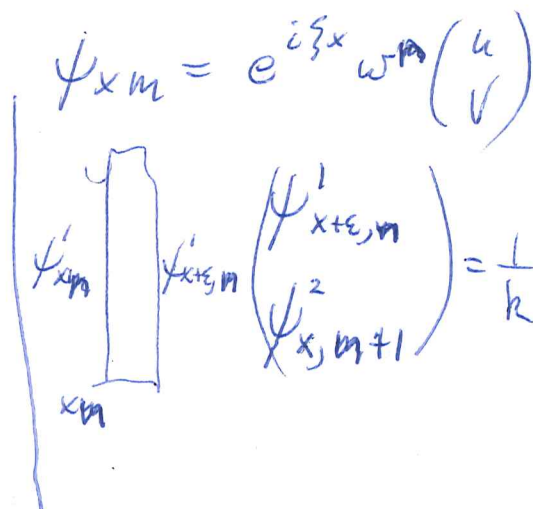 ψxm = e^{iξx} ω^m (u
v)
ψ^1_{xm} ψ^1_{x+ε,m} (ψ^1_{x+ε,m}
ψ^2_{x,m+1}) = 1/k
xm